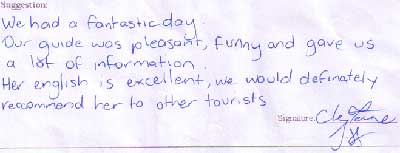 Suggestion:
We had a fantastic day.
Our guide was pleasant, funny and gave us
a lot of information.
Her english is excellent, we would definately
recommend her to other tourists
Signature: